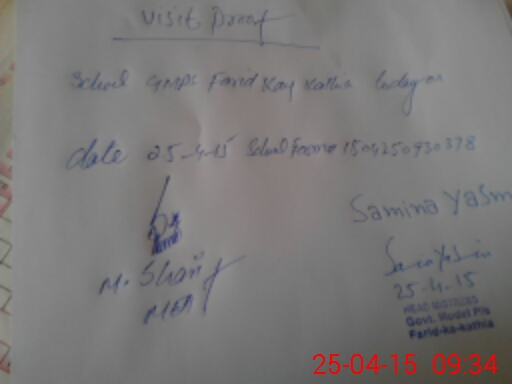 Visit Proof
School GMPS Farid Kay Kathia
date 25-4-15 School Form 1504250930378
Samina Yasm
M. Shafi
25.4.15
MEA
HEAD MISTRESS
Govt. Model P/s
Farid-ka-kathia
25-04-15 09:34